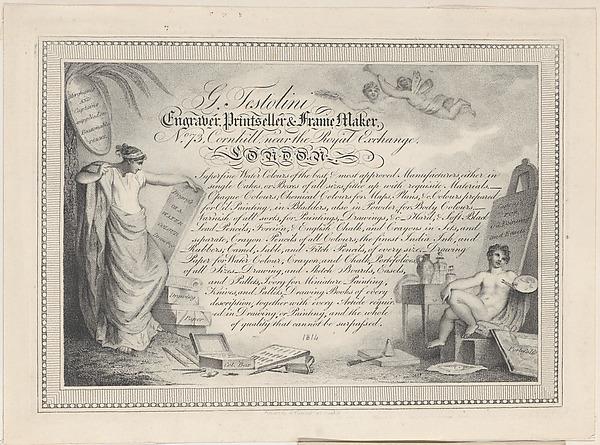 G. Testolini
Engraver, Printseller & Frame Maker,
No. 73, Cornhill, near the Royal Exchange,
LONDON
Superfine Water Colours of the best & most approved Manufacturers, either in
single Cakes, or Boxes of all sizes, fitted up with requisite Materials,—
Opaque Colours, Chemical Colours for Maps, Plans, &c. Colours prepared
for Oil Painting, in Bladders, also in Powder for Body Colours,—
Varnish of all sorts, for Paintings, Drawings, &c.— Hard, & Soft Black
Lead Pencils, Foreign, & English Chalk, and Crayons in Sets, and
separate, Crayon Pencils of all Colours, the finest India Ink, and
Rubbers, Camel, Sable, and Fitch Pencils, of every size, Drawing
Paper for Water Colour, Crayon, and Chalk, Portfolios
of all Sizes, Drawing, and Sketch Boards, Easels,
and Pallets, Ivory for Miniature Painting,
Knives, and Pallets, Drawing Books of every
description, together with every Article requir-
ed in Drawing, or Painting, and the whole
of quality that cannot be surpassed.
1814
Merchants
AND
Captains
supplied on
Reasonable
terms.
Drawing
Paper
Col. Box
and Easels
Portfolio